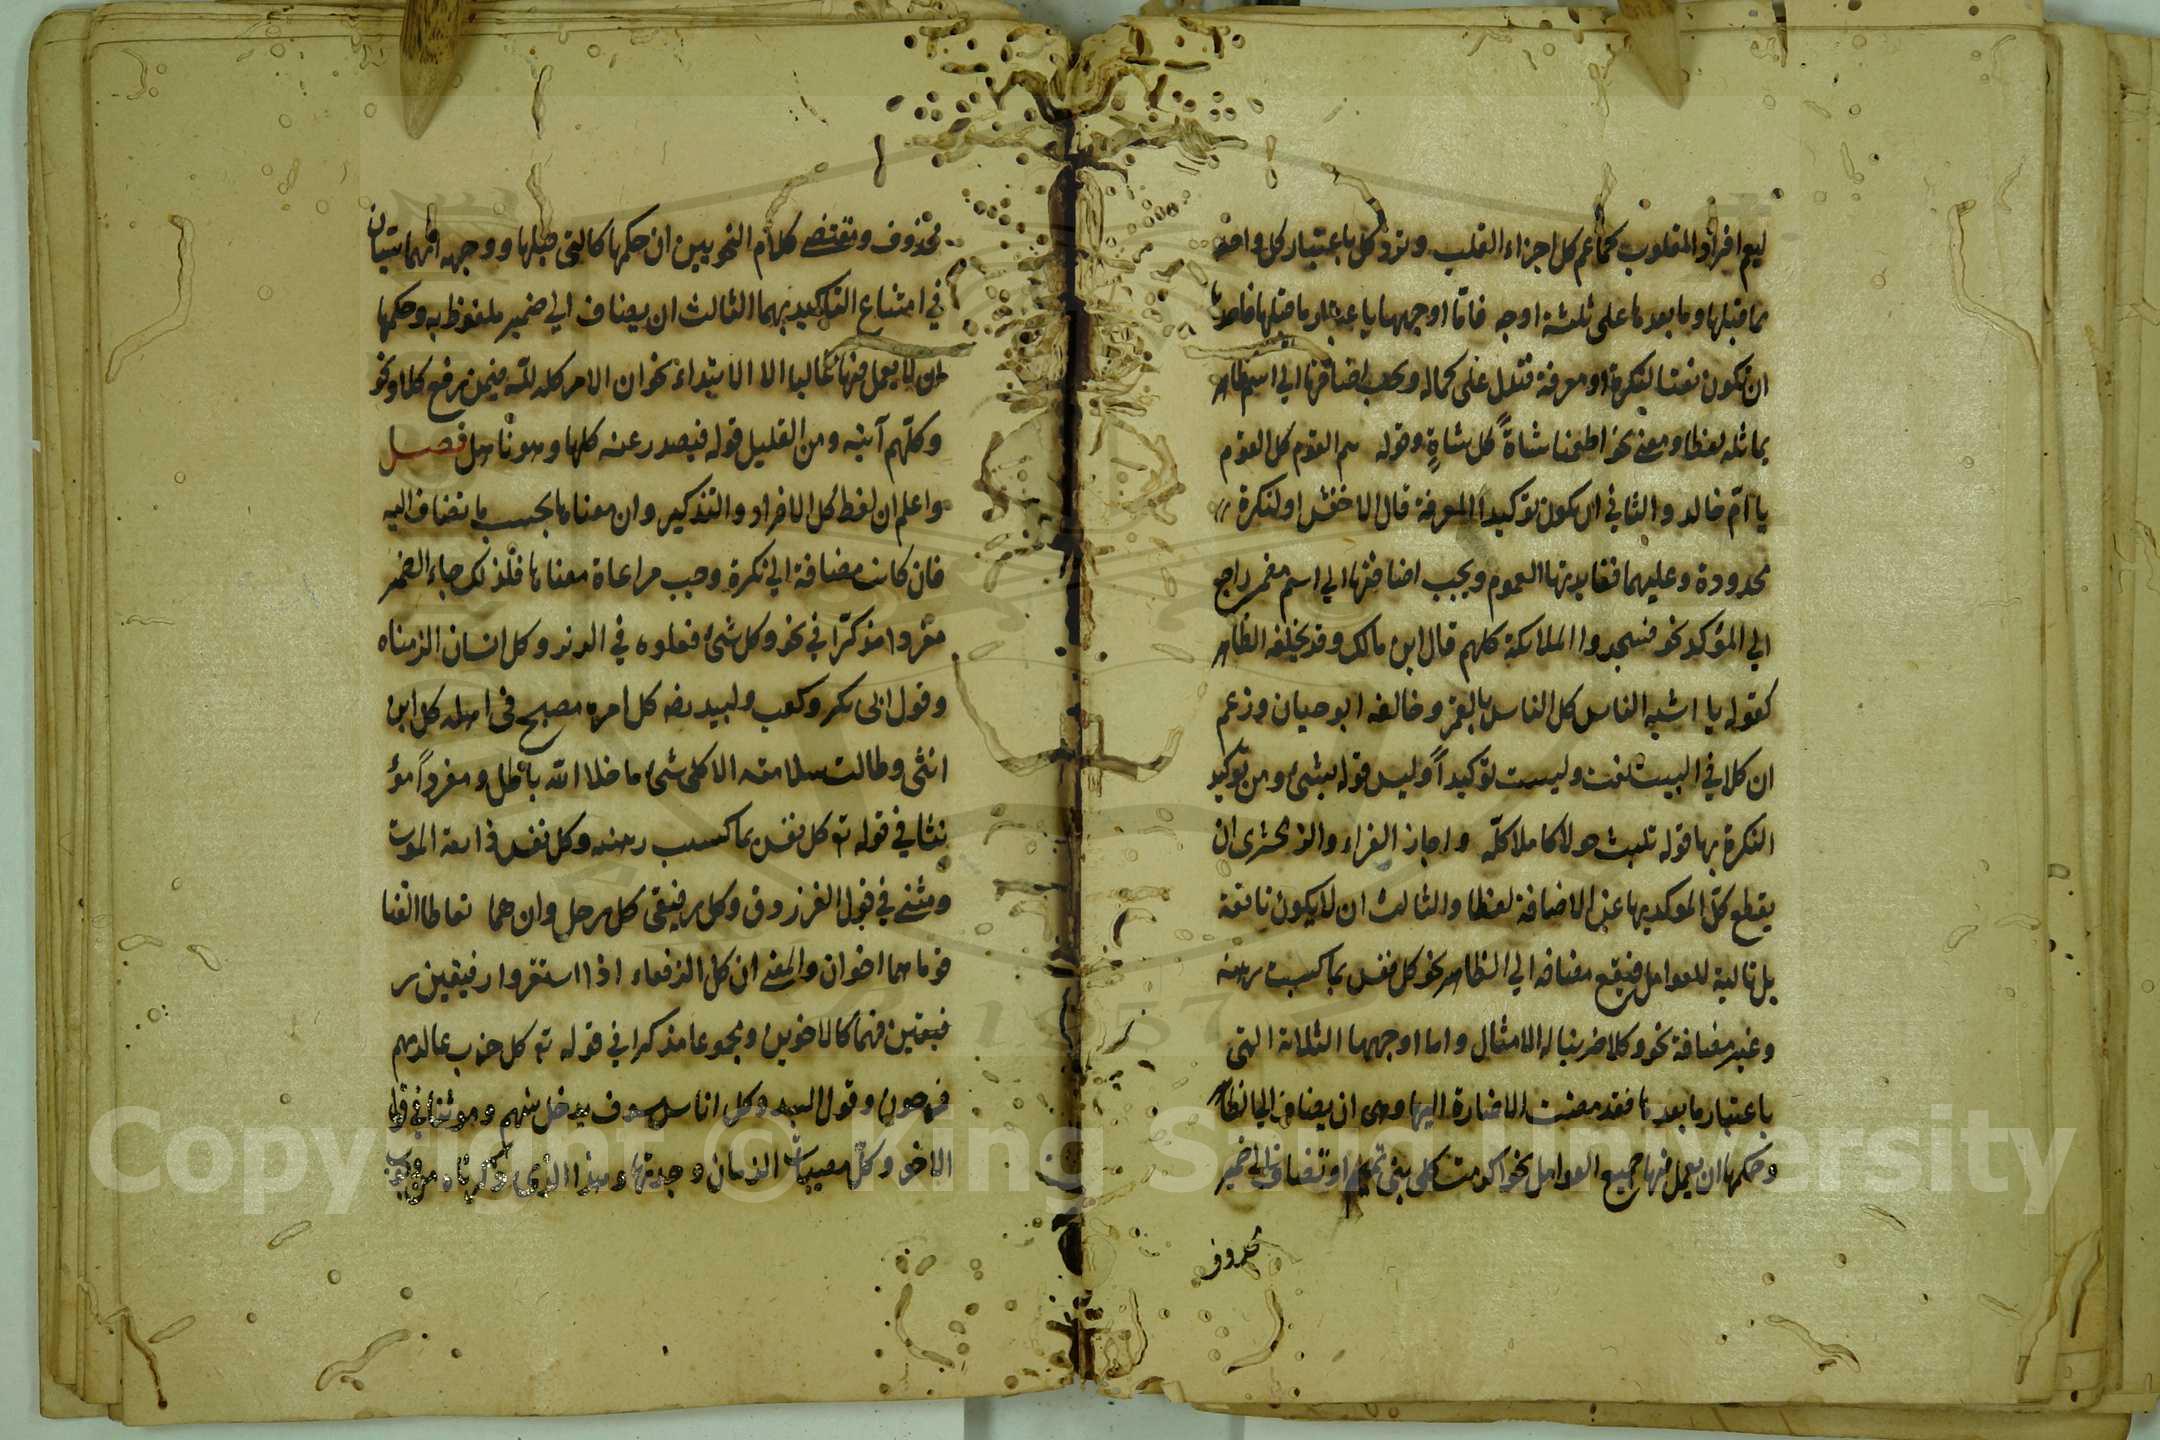 ليعم افراد المقلوب كما عم كل اجزاء القلب وترد كل باعتبار كل واحد
مما قبلها وما بعدها على ثلثة اوجه فاما اوجهها باعتبار ما قبلها فاحدها
ان تكون نعتا لنكرة او معرفة فتدل على كماله ويجب اضافتها الي اسم ظاهر
يماثله لفظا ومعنى نحو اطعمنا شاةً كل شاةٍ وقوله هم القوم كل القوم
يا امّ خالد والثاني ان يكون توكيدا لمعرفة قال الاخفش او لنكرة
محدودة وعليهما ففايدتها العموم ويجب اضافتها الي اسم مضمر راجع
الي المؤكد نحو فسجد الملائكة كلهم قال ابن مالك وقد يخلفه الظاهر
كقوله يا اشبه الناس كل الناس بالقمر وخالفه ابو حيان وزعم
ان كلا في البيت نعت وليست توكيداً وليس قوله بشئ ومن توكيد
النكرة بها قوله تلبث حولا كاملا كلّه واجاز الفراء والزمخشرى ان
يقطع كل الموكد بها عن الاضافة لفظا والثالث ان لا يكون تابعة
بل تالية للعوامل فيقع مضافه الي الظاهر نحو كل نفس بما كسبت رهينه
وغير مضافة نحو وكلا ضربنا له الامثال واما اوجهها الثلاثة التي
باعتبار ما بعدها فقد مضت الاشارة اليها وهى ان يضاف الي الظاهر
وحكمها ان يعمل فيها جميع العوامل نحو اكرمت كل بني تميم او تضاف الي ضمير
محذوف
محذوف ومقتضى كلام النحويين ان حكمها كالتي قبلها ووجهه انهما سيان
في امتناع التاكيد بهما الثالث ان يضاف الي ضمير ملفوظ به وحكمها
ان لا يعمل فيها غالبا الا الابتداء نحو ان الامر كله لله فيمن رفع كلا ونحو
وكلّهم آتيه ومن القليل قوله فيصدر عنه كلها وهو ناهل فصل
واعلم ان لفظ كل الافراد والتذكير وان معناها بحسب ما تضاف اليه
فان كانت مضافة الي نكرة وجب مراعاة معناها فلذلك جاء الضمير
مفردا مذكّرا في نحو وكل شئ فعلوه في الزبر وكل انسان الزمناه
وقول ابى بكر وكعب ولبيد رضه كل امرء مصبح فى اهله كل ابن
انثى وطالت سلامته الا كل شئ ما خلا الله باطل ومفرداً مؤ
نثا في قوله ته كل نفس بما كسبت رهينه وكل نفس ذائقة الموت
ومثنى في قول الفرزدق وكل رفيقى كل رحل وان هما تعاطا القنا
قوما هما اخوان والمعنى ان كل الرفقاء اذا استقروا رفيقين ر
فيقين فهما كالاخوين ومجموعا مذكرا في قوله ته كل حزب بما لديهم
فرحون وقول لبيد وكل اناس سوف يدخل بينهم ومؤنثا في قول
الاخر وكل مصيبات الزمان وجدتها وهذا الذى ذكرناه من وجوب
Copyright © King Saud University
1957